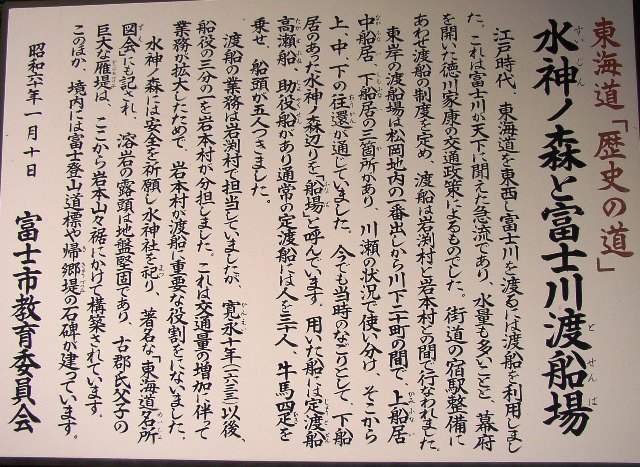 東海道「歴史の道」
水神ノ森と富士川渡船場
江戸時代、東海道を東西し富士川を渡るには渡船を利用しまし
た。これは富士川が天下に聞えた急流であり、水量も多いことと、幕府
を開いた徳川家康の交通政策によるものでした。街道の宿駅整備に
あわせ渡船の制度を定め、渡船は岩渕村と岩本村との間で行なわれました。
東岸の渡船場は松岡地内の一番出しから川下二十町の間で、上船居
中船居、下船居の三箇所があり、川瀬の状況で使い分け、そこから
上、中、下の往還が通じていました。今でも当時のなごりとして、下船
居のあった水神ノ森辺りを「船場」と呼んでいます。用いた船には定渡船
高瀬船、助役船があり通常の定渡船には人を三十人、牛馬四疋を
乗せ、船頭が五人つきました。
渡船の業務は岩渕村で担当していましたが、寛永十年(一六三三)以後、
船役の三分の一を岩本村が分担しました。これは交通量の増加に伴って
業務が拡大したためで、岩本村が渡船に重要な役割をになってい ました。
水神ノ森には安全を祈願し水神社を祀り、著名な「東海道名所
図会」にも記され、溶岩の露頭は地盤堅固であり、古郡氏父子の
巨大な雁堤は、ここから岩本山々裾にかけて構築されています。
このほか、境内には富士登山道標や帰郷堤の石碑が建っています。
昭和六一年一月十日
富士市教育委員会